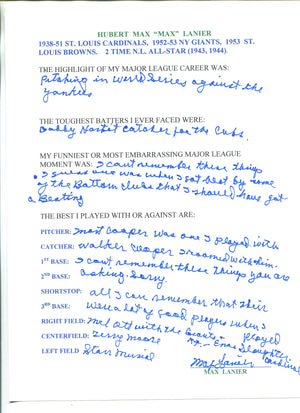 HUBERT MAX "MAX" LANIER
1938-51 ST. LOUIS CARDINALS, 1952-53 NY GIANTS, 1953 ST.
LOUIS BROWNS. 2 TIME N.L. ALL-STAR (1943, 1944)
THE HIGHLIGHT OF MY MAJOR LEAGUE CAREER WAS:
Pitching in World Series against the
Yankees
THE TOUGHEST BATTERS I EVER FACED WERE:
Catcher for the Cubs.
MY FUNNIEST OR MOST EMBARRASSING MAJOR LEAGUE
MOMENT WAS: I cant remember these things
I guess one was when I got beat by some
of the Bottom clubs that I should have got
a Beating
THE BEST I PLAYED WITH OR AGAINST ARE:
PITCHER: Mort Cooper was one I played with
CATCHER: Walker Cooper I roomed with him.
1ST BASE: I cant remember these things you are
2ND BASE: asking Sorry.
SHORTSTOP: all I can remember that their
3RD BASE: were a lot of good players when I
played
RIGHT FIELD: Mel Ott with the Giants
R.F. Enos Slaughter Cardinals
CENTERFIELD: Terry Moore
LEFT FIELD Stan Musial
Max Lanier
MAX LANIER